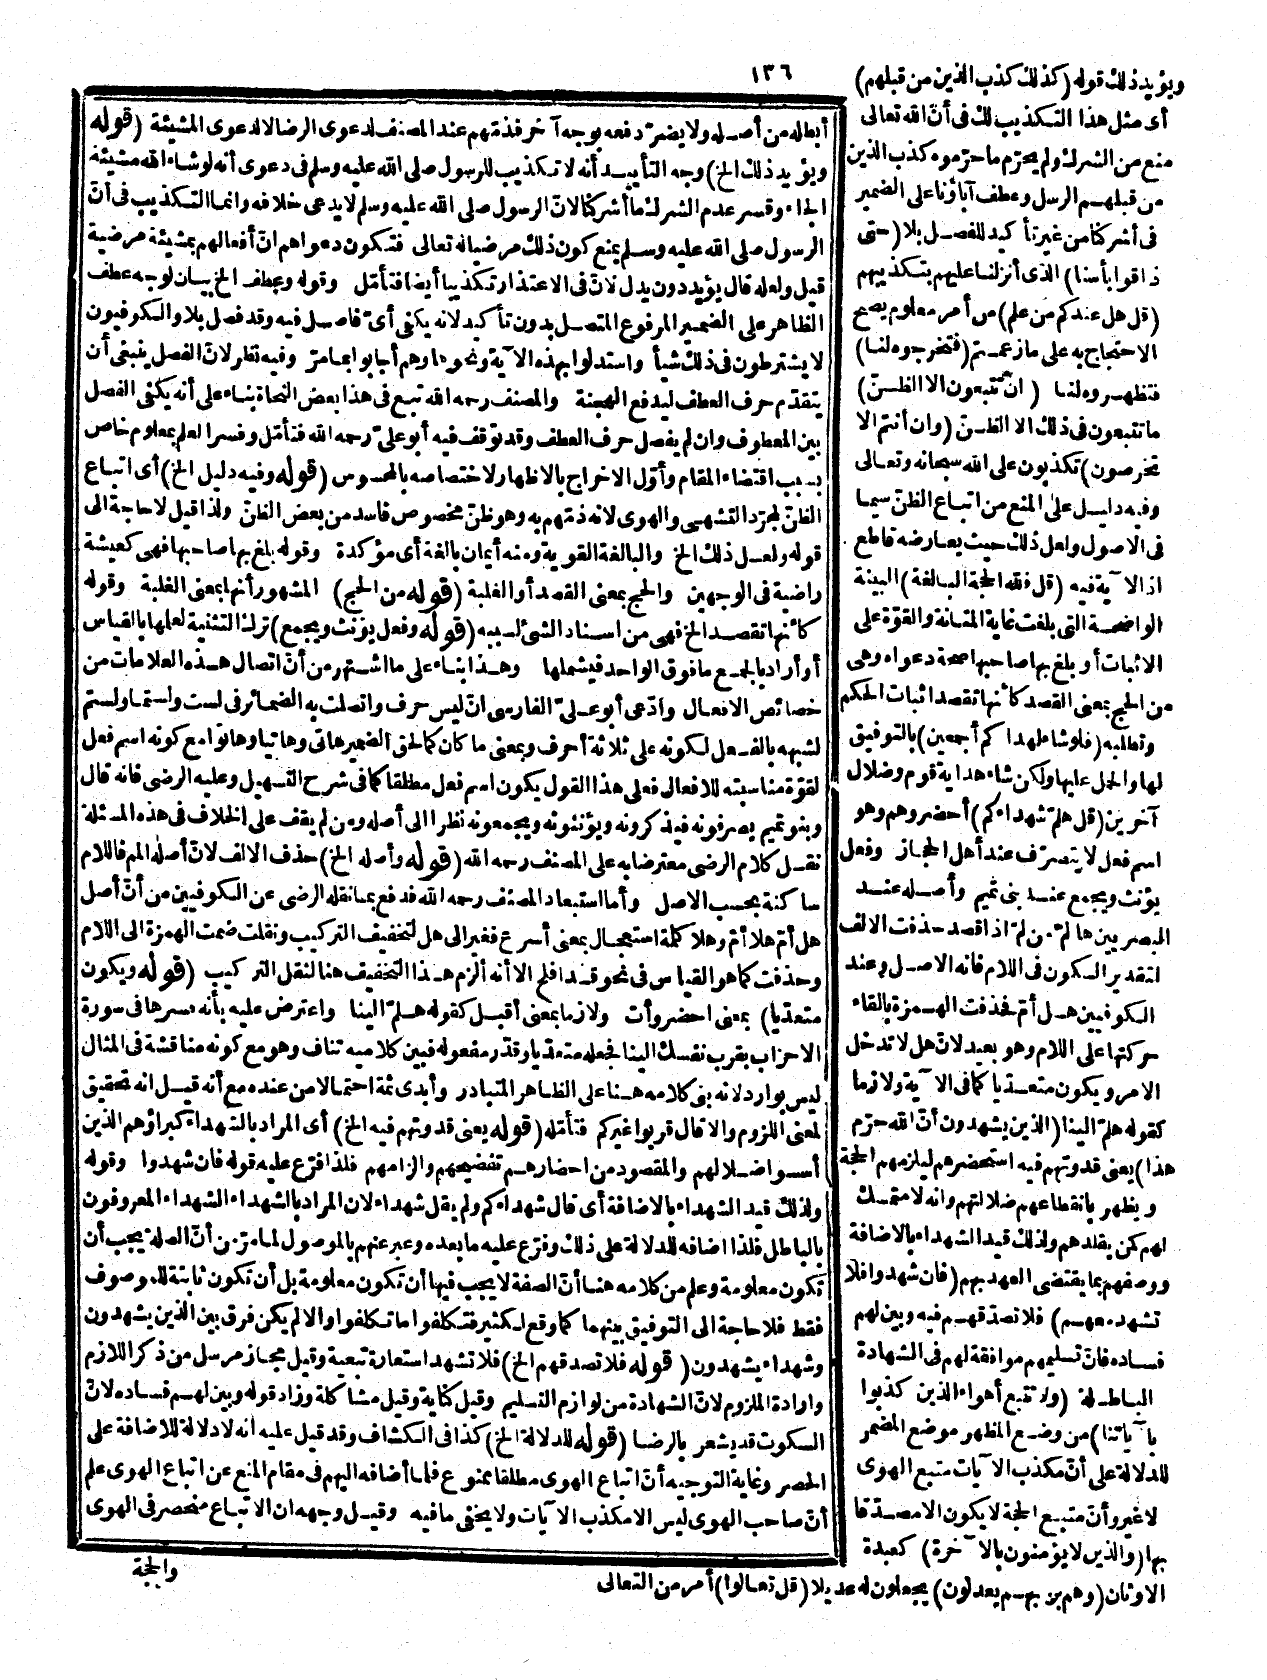 ١٣٦
ويؤيد ذلك قوله (كذلك كذب الذين من قبلهم)
أى مثل هذا التكذيب لك فى أنّ الله تعالى
منع من الشرك ولم يحرّم ما حرّموه كذب الذين
من قبلهم الرسل وعطف آباؤنا على الضمير
فى أشركنا من غير تأكيد للفصل بلا (حتى
ذاقوا بأسنا) الذى أنزلنا عليهم بتكذيبهم
(قل هل عندكم من علم) من أمر معلوم يصح
الاحتجاج به على ما زعمتم (فتخرجوه لنا)
فتظهروه لنا (ان تتبعون الا الظنّ)
ما تتبعون فى ذلك الا الظنّ (وان أنتم الا
تخرصون) تكذبون على الله سبحانه وتعالى
وفيه دليل على المنع من اتباع الظنّ سيما
فى الاصول ولعل ذلك حيث يعارضه قاطع
اذ الآية فيه (قل فلله الحجة البالغة) البينة
الواضحة التى بلغت غاية المتانة والقوّة على
الاثبات أو بلغ بها صاحبها صحة دعواه وهى
من الحج بمعنى القصد كأنها تقصد اثبات الحكم
وتطلبه (فلو شاء لهداكم أجمعين) بالتوفيق
لها والحمل عليها ولكن شاء هداية قوم وضلال
آخرين (قل هلمّ شهداءكم) أحضروهم وهو
اسم فعل لا يتصرّف عند أهل الحجاز وفعل
يؤنث ويجمع عند بنى تميم وأصله عند
البصريين ها لمّ من لمّ اذا قصد حذفت الالف
لتقدير السكون فى اللام فانه الاصل وعند
الكوفيين هل أمّ فحذفت الهمزة بالقاء
حركتها على اللام وهو بعيد لانّ هل لا تدخل
الامر ويكون متعدّيا كما فى الآية ولازما
كقوله هلمّ الينا (الذين يشهدون أنّ الله حرّم
هذا) يعنى قدوتهم فيه استحضرهم ليلزمهم الحجة
ويظهر بانقطاعهم ضلالتهم وانه لا متمسك
لهم كمن يقلدهم ولذلك قيد الشهداء بالاضافة
ووصفهم بما يقتضى العهد بهم (فان شهدوا فلا
تشهد معهم) فلا تصدّقهم فيه وبين لهم
فساده فانّ تسليمهم موافقة لهم فى الشهادة
الباطلة (ولا تتبع أهواء الذين كذبوا
بآياتنا) من وضع المظهر موضع المضمر
للدلالة على أنّ مكذب الآيات متبع الهوى
لا غير وأنّ متبع الحجة لا يكون الا مصدّقا
بها (والذين لا يؤمنون بالآخرة) كعبدة
الاوثان (وهم بربهم يعدلون) يجعلون له عديلا (قل تعالوا) أمر من التعالى
أبطاله من أصله ولا يضرّ دفعه بوجه آخر فذمّهم عند المصنف لدعوى الرضا لا لدعوى المشيئة (قوله
ويؤيد ذلك الخ) وجه التأييد أنه لا تكذيب للرسول صلى الله عليه وسلم فى دعوى أنه لو شاء الله مشيئة
الجاء وقسر عدم الشرك ما أشركنا لانّ الرسول صلى الله عليه وسلم لا يدعى خلافه وانما التكذيب فى أنّ
الرسول صلى الله عليه وسلم يمنع كون ذلك مرضيا له تعالى فتكون دعواهم انّ أفعالهم بمشيئة مرضية
قيل ولعله قال يؤيد دون يدل لانّ فى الاعتذار تكذيبا أيضا فتأمّل وقوله وعطف الخ بيان لوجه عطف
الظاهر على الضمير المرفوع المتصل بدون تأكيد لانه يكفى أىّ فاصل فيه وقد فصل بلا والكوفيون
لا يشترطون فى ذلك شيأ واستدلوا بهذه الآية ونحوها وهم أجابوا بما مرّ وفيه نظر لانّ الفصل ينبغى أن
يتقدّم حرف العطف ليدفع الهجنة والمصنف رحمه الله تبع فى هذا بعض النحاة بناء على أنه يكفى الفصل
بين المعطوف وان لم يفصل حرف العطف وقد توقف فيه أبو علىّ رحمه الله فتأمّل وفسر العلم بمعلوم خاص
بسبب اقتضاء المقام وأوّل الاخراج بالاظهار لاختصاصه بالمحسوس (قوله وفيه دليل الخ) أى اتباع
الظنّ لمجرّد التشهى والهوى لانه ذمّهم به وهو ظنّ مخصوص فاسد من بعض الظنّ ولذا قيل لا حاجة الى
قوله ولعل ذلك الخ والبالغة القوية ومنه أيمان بالغة أى مؤكدة وقوله بلغ بها صاحبها فهى كعيشة
راضية فى الوجهين والحج بمعنى القصد أو الغلبة (قوله من الحج) المشهور أنها بمعنى الغلبة وقوله
كأنها تقصد الخ فهى من اسناد الشئ لسببه (قوله وفعل يؤنث ويجمع) ترك التثنية لعلمها بالقياس
أو أراد بالجمع ما فوق الواحد فيشملها وهذا بناء على ما اشتهر من أنّ اتصال هذه العلامات من
خصائص الافعال وادّعى أبو علىّ الفارسى انّ ليس حرف واتصلت به الضمائر فى لست ولستما ولستم
لشبهه بالفعل لكونه على ثلاثة أحرف وبمعنى ما كان كما لحق الضمير هاتى وهاتيا وهاتوا مع كونه اسم فعل
لقوّة مناسبته للافعال فعلى هذا القول يكون اسم فعل مطلقا كما فى شرح التسهيل وعليه الرضى فانه قال
وبنو تميم يصرفونه فيذكرونه ويؤنثونه ويجمعونه نظرا الى أصله ومن لم يقف على الخلاف فى هذه المسئلة
نقل كلام الرضى معترضا به على المصنف رحمه الله (قوله وأصله الخ) حذف الالف لانّ أصله المم فاللام
ساكنة بحسب الاصل وأما استبعاد المصنف رحمه الله فدفع بما نقله الرضى عن الكوفيين من أنّ أصل
هل أمّ هلا أمّ وهلا كلمة استعجال بمعنى أسرع فغير الى هل لتخفيف التركيب ونقلت ضمت الهمزة الى اللام
وحذفت كما هو القياس فى نحو قد افلح الا أنه ألزم هذا التخفيف هنا لنقل التركيب (قوله ويكون
متعدّيا) بمعنى احضر وأت ولازما بمعنى أقبل كقوله هلمّ الينا واعترض عليه بأنه فسرها فى سورة
الاحزاب بقرب نفسك الينا فجعله متعدّيا وقدّر مفعوله فبين كلاميه تناف وهو مع كونه مناقشة فى المثال
ليس بوارد لانه بنى كلامه هنا على الظاهر المتبادر وأبدى ثمة احتمالا من عنده مع أنه قيل انه تحقيق
لمعنى اللزوم والا قال قربوا غيركم فتأمّله (قوله يعنى قدوتهم فيه الخ) أى المراد بالشهداء كبراؤهم الذين
أسسوا ضلالهم والمقصود من احضارهم تفضيحهم والزامهم فلذا فرّع عليه قوله فان شهدوا وقوله
ولذلك قيد الشهداء بالاضافة أى قال شهداءكم ولم يقل شهداء لان المراد بالشهداء الشهداء المعروفون
بالباطل فلذا اضافه للدلالة على ذلك وفرّع عليه ما بعده وعبر عنهم بالموصول لما مرّ من أنّ الصلة يجب أن
تكون معلومة وعلم من كلامه هنا أنّ الصفة لا يجب فيها أن تكون معلومة بل أن تكون ثابتة للموصوف
فقط فلا حاجة الى التوفيق بينهما كما وقع لكثير فتكلفوا ما تكلفوا والا لم يكن فرق بين الذين يشهدون
وشهداء يشهدون (قوله فلا تصدقهم الخ) فلا تشهد استعارة تبعية وقيل مجاز مرسل من ذكر اللازم
وارادة الملزوم لانّ الشهادة من لوازم التسليم وقيل كناية وقيل مشاكلة وزاد قوله وبين لهم فساده لانّ
السكوت قد يشعر بالرضا (قوله للدلالة الخ) كذا فى الكشاف وقد قيل عليه انه لا دلالة للاضافة على
الحصر وغاية التوجيه أنّ اتباع الهوى مطلقا ممنوع فلما أضافه اليهم فى مقام المنع عن اتباع الهوى علم
أنّ صاحب الهوى ليس الا مكذب الآيات ولا يخفى ما فيه وقيل وجهه ان الاتباع منحصر فى الهوى
والحجة